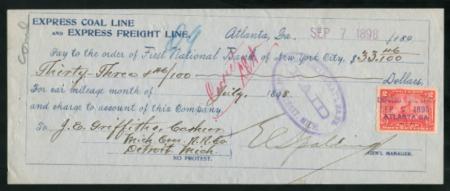 EXPRESS COAL LINE
AND EXPRESS FREIGHT LINE.
Atlanta, Ga. SEP 7 1898 /189
Pay to the order of First National Bank of New York City, $33 46/100
Thirty-Three & 46/100 Dollars,
For car mileage month of July, 1898.
and charge to account of this Company.
To J. E. Griffiths, Cashier
Mich Cen. R.R. Co
Detroit Mich.
NO PROTEST.
E C Spalding
GEN'L MANAGER.
1898
ATLANTA, GA
PAID